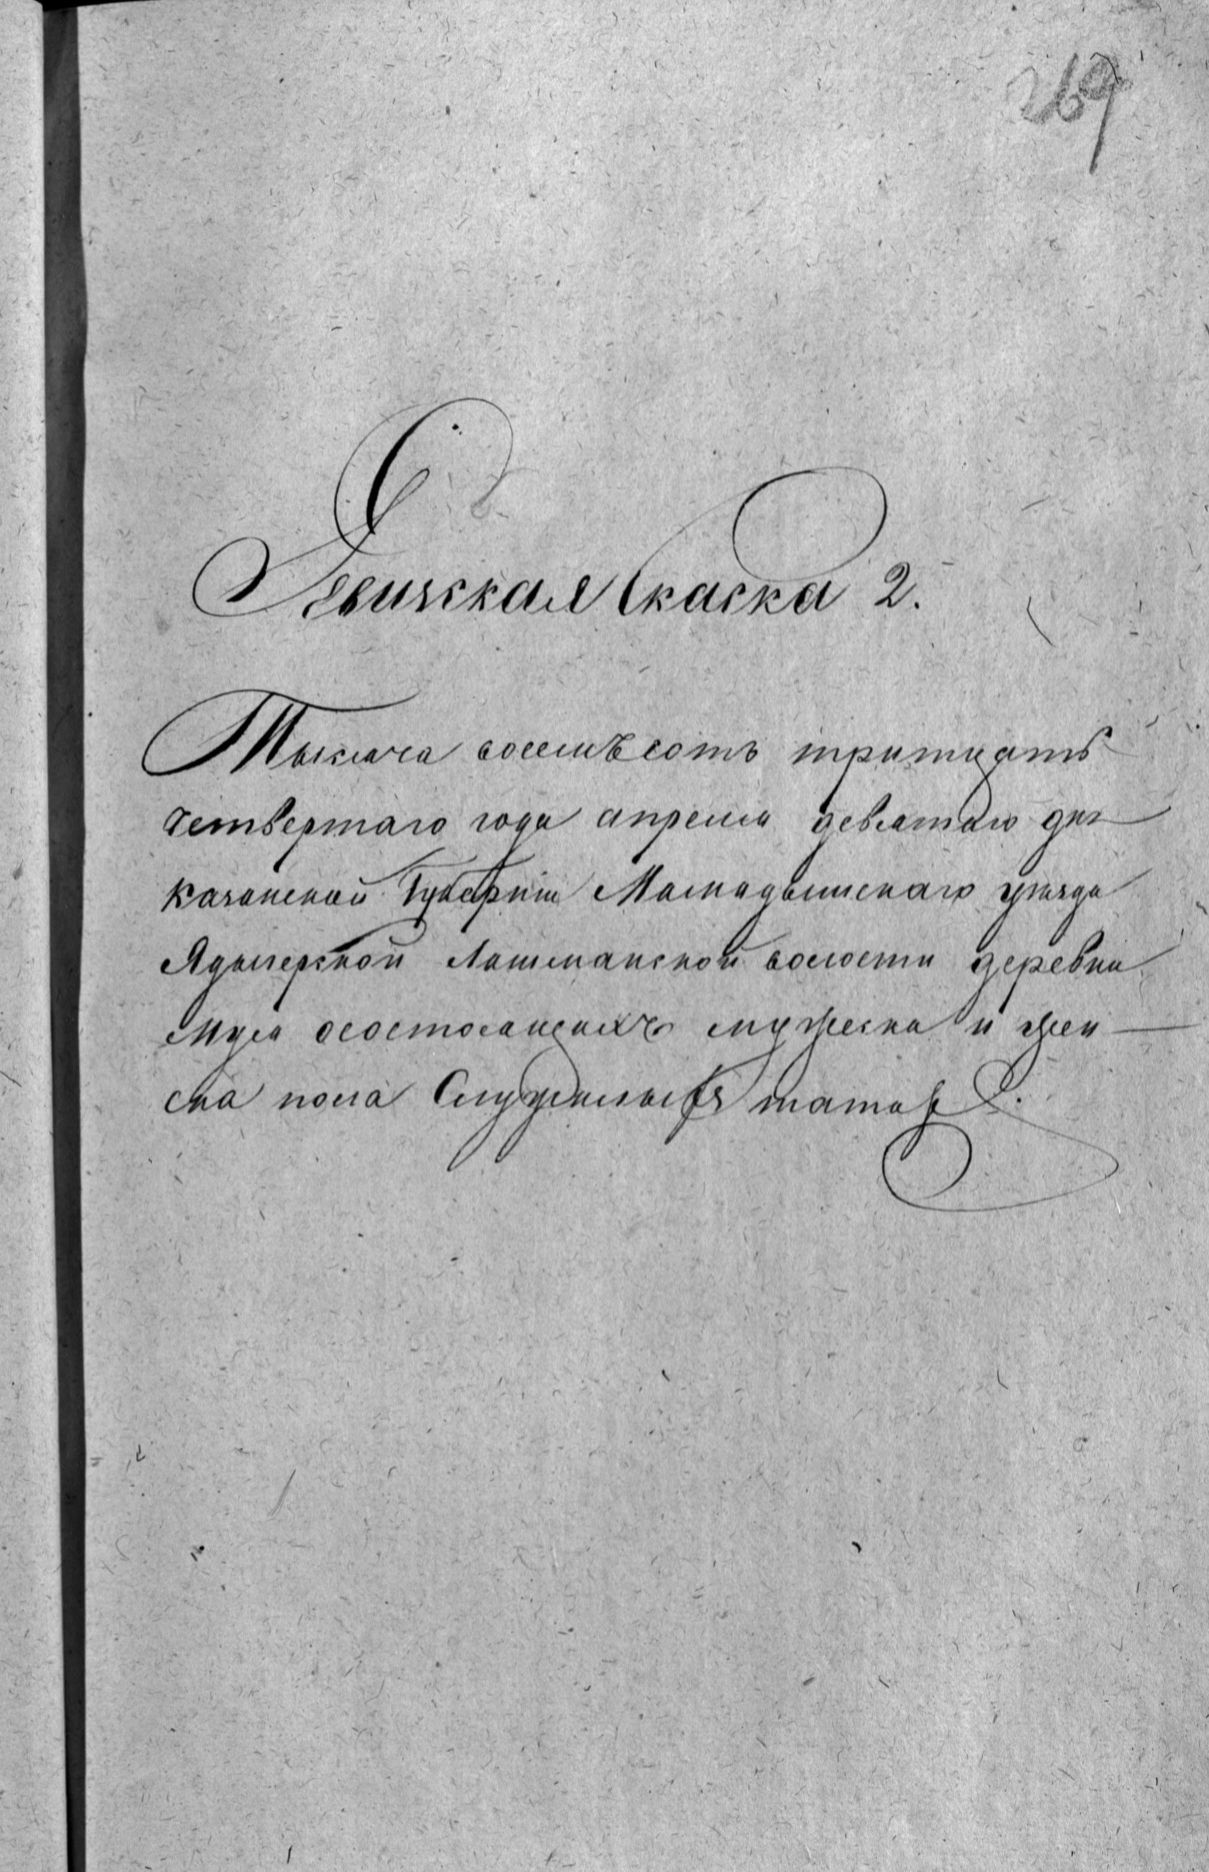 269
Ревижская Скаска 2.
Тысяча восемьсотъ тритцать
четвертаго года апреля девятаго дня
казанской Губернии Мамадышскаго уезда
Ядыгерской Лашманской волости деревни
осостоящихъ мужеска и жен
ска пола Служилыхъ татар